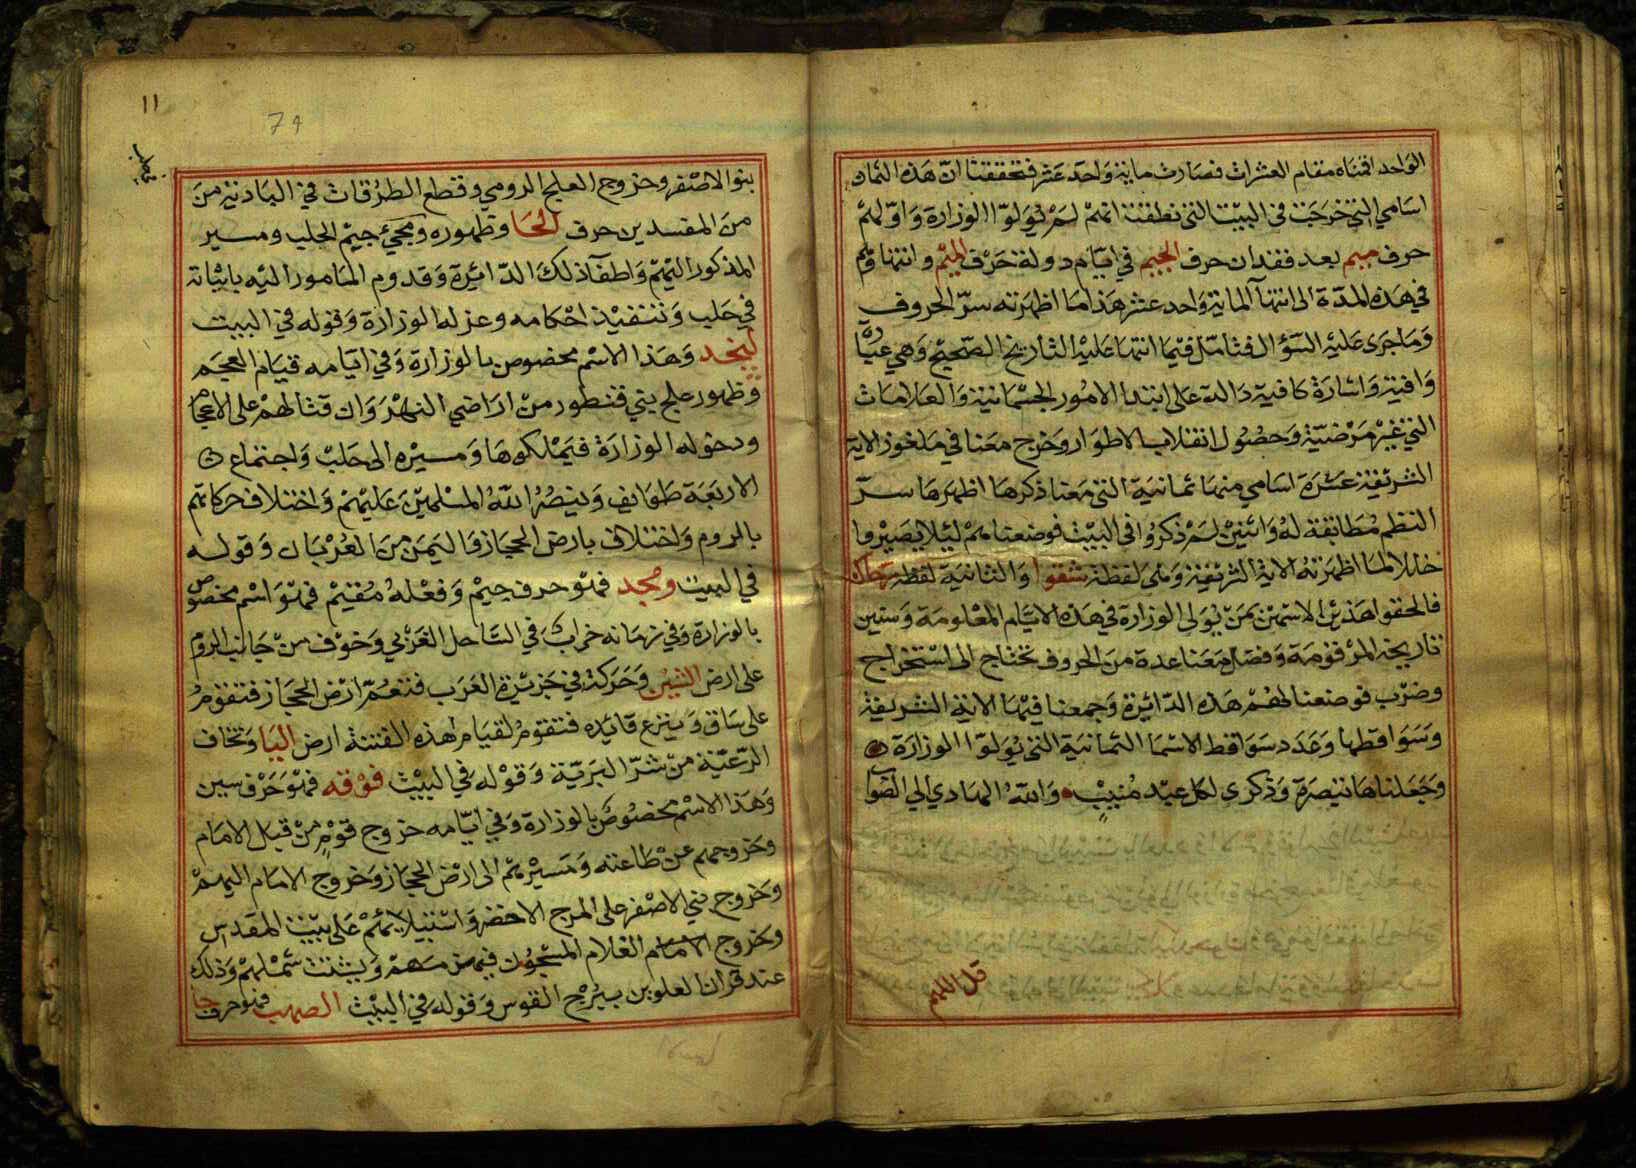 الواحد اقمناه مقام العشرات فصارت ماية واحد عشر فتحققنا ان هذه الثمان
اسامي التي خرجت في البيت التي نطقت انهم لم يولوا الوزارة واولهم
حرف جيم بعد فقدان حرف الجيم في ايام دولة حرف الميم وانتهاوهم
في هذه المدة الى انتهآ الماية واحد عشر هذا ما اظهرته سرّ الحروف
وما جرى عليه السؤال فتامل فيما انتها عليه التاريخ الصحيح وهي
وافية واشارة كافية دالة على ابتدا الامور الجسمانية والعلامات
التي غير مرضية وحصول انقلاب الاطوار وخرج معنا في ملغوز الاية
الشريفة عشرة اسامي منها ثمانية التي معنا ذكرها اظهرها سرّ
النظم مطابقة له واثنين لم ذكروا في البيت فوضعناهم لئلا يصيروا
خللا لما اظهرته الاية الشريفة وهي لفظة شقوا والثانية لفظة
فالحقوا هذين الاسمين بمن يولى الوزارة في هذه الايام المعلومة وستين
تاريخه المرقومة وفضل معنا عدة من الحروف تحتاج الى استخراج
وضرب فوضعنا لهم هذه الدائرة وجمعنا فيها الاية الشريفة
وسواقطها وعدد سواقط الاسما الثمانية التي يولوا الوزارة
وجعلناها تبصرة وذكرى لكل عبد منيب والله الهادي الي الصواب
قل اللهم
١١
79
بنو الاصفر وخروج العلج الرومي وقطع الطرقات في البادية من
من المفسدين حرف الحا وظهوره ومجيء جيم الحلب ومسير
المذكور اليهم واطفآ ذلك الدائرة وقدوم المامور اليه باثباته
في حلب وتنفيذ احكامه وعزله الوزارة وقوله في البيت
لينجد وهذا الاسم مخصوص بالوزارة وفي ايامه قيام العجم
وظهور علج بني قنطور من اراضي النهر وان قتالهم على الاعجام
ودخوله الوزارة فيملكوها ومسيره الى حلب واجتماع
الاربعة طوايف وينصر الله المسلمين عليهم واختلاف حركاتهم
بالروم واختلاف بارض الحجاز واليمن من العربان وقوله
في البيت ومجد فهو حرف جيم وفعله مقيم فهو اسم مخصوص
بالوزارة وفي زمانه خراب في الساحل الغربي وخوف من جانب الروم
على ارض الشين وحركة في جزيرة العرب فتعم ارض الحجاز فتقوم
على ساق وينزع قايده فتقوم لقيام هذه الفتنة ارض اليا وتخاف
الرعية من شرّ البرية وقوله في البيت فوقه فهو حرف سين
وهذا الاسم مخصوص بالوزارة وفي ايامه خروج قوم من قبل الامام
وخروجهم عن طاعته ومسيرهم الى ارض الحجاز وخروج الامام اليهم
وخروج بني الاصفر على المرج الاخضر واستيلائهم على بيت المقدس
وخروج الامام الغلام المسجون ويشتت شملهم وذلك
عند قران العلوين ببرج القوس وقوله في البيت الصهب فهو حرف حا